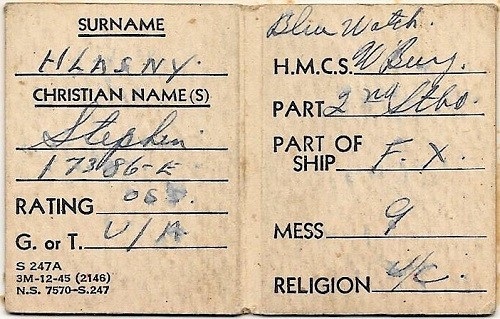 SURNAME
HLASNY.
CHRISTIAN NAME(S)
Stephen.
17386-E
RATING OSS.
G. or T. U/A
S 247A
3M-12-45 (2146)
N.S. 7570-S.247
Blue Watch.
H.M.C.S. W Bury.
PART 2nd Stbd.
PART OF
SHIP F. X.
MESS 9
RELIGION